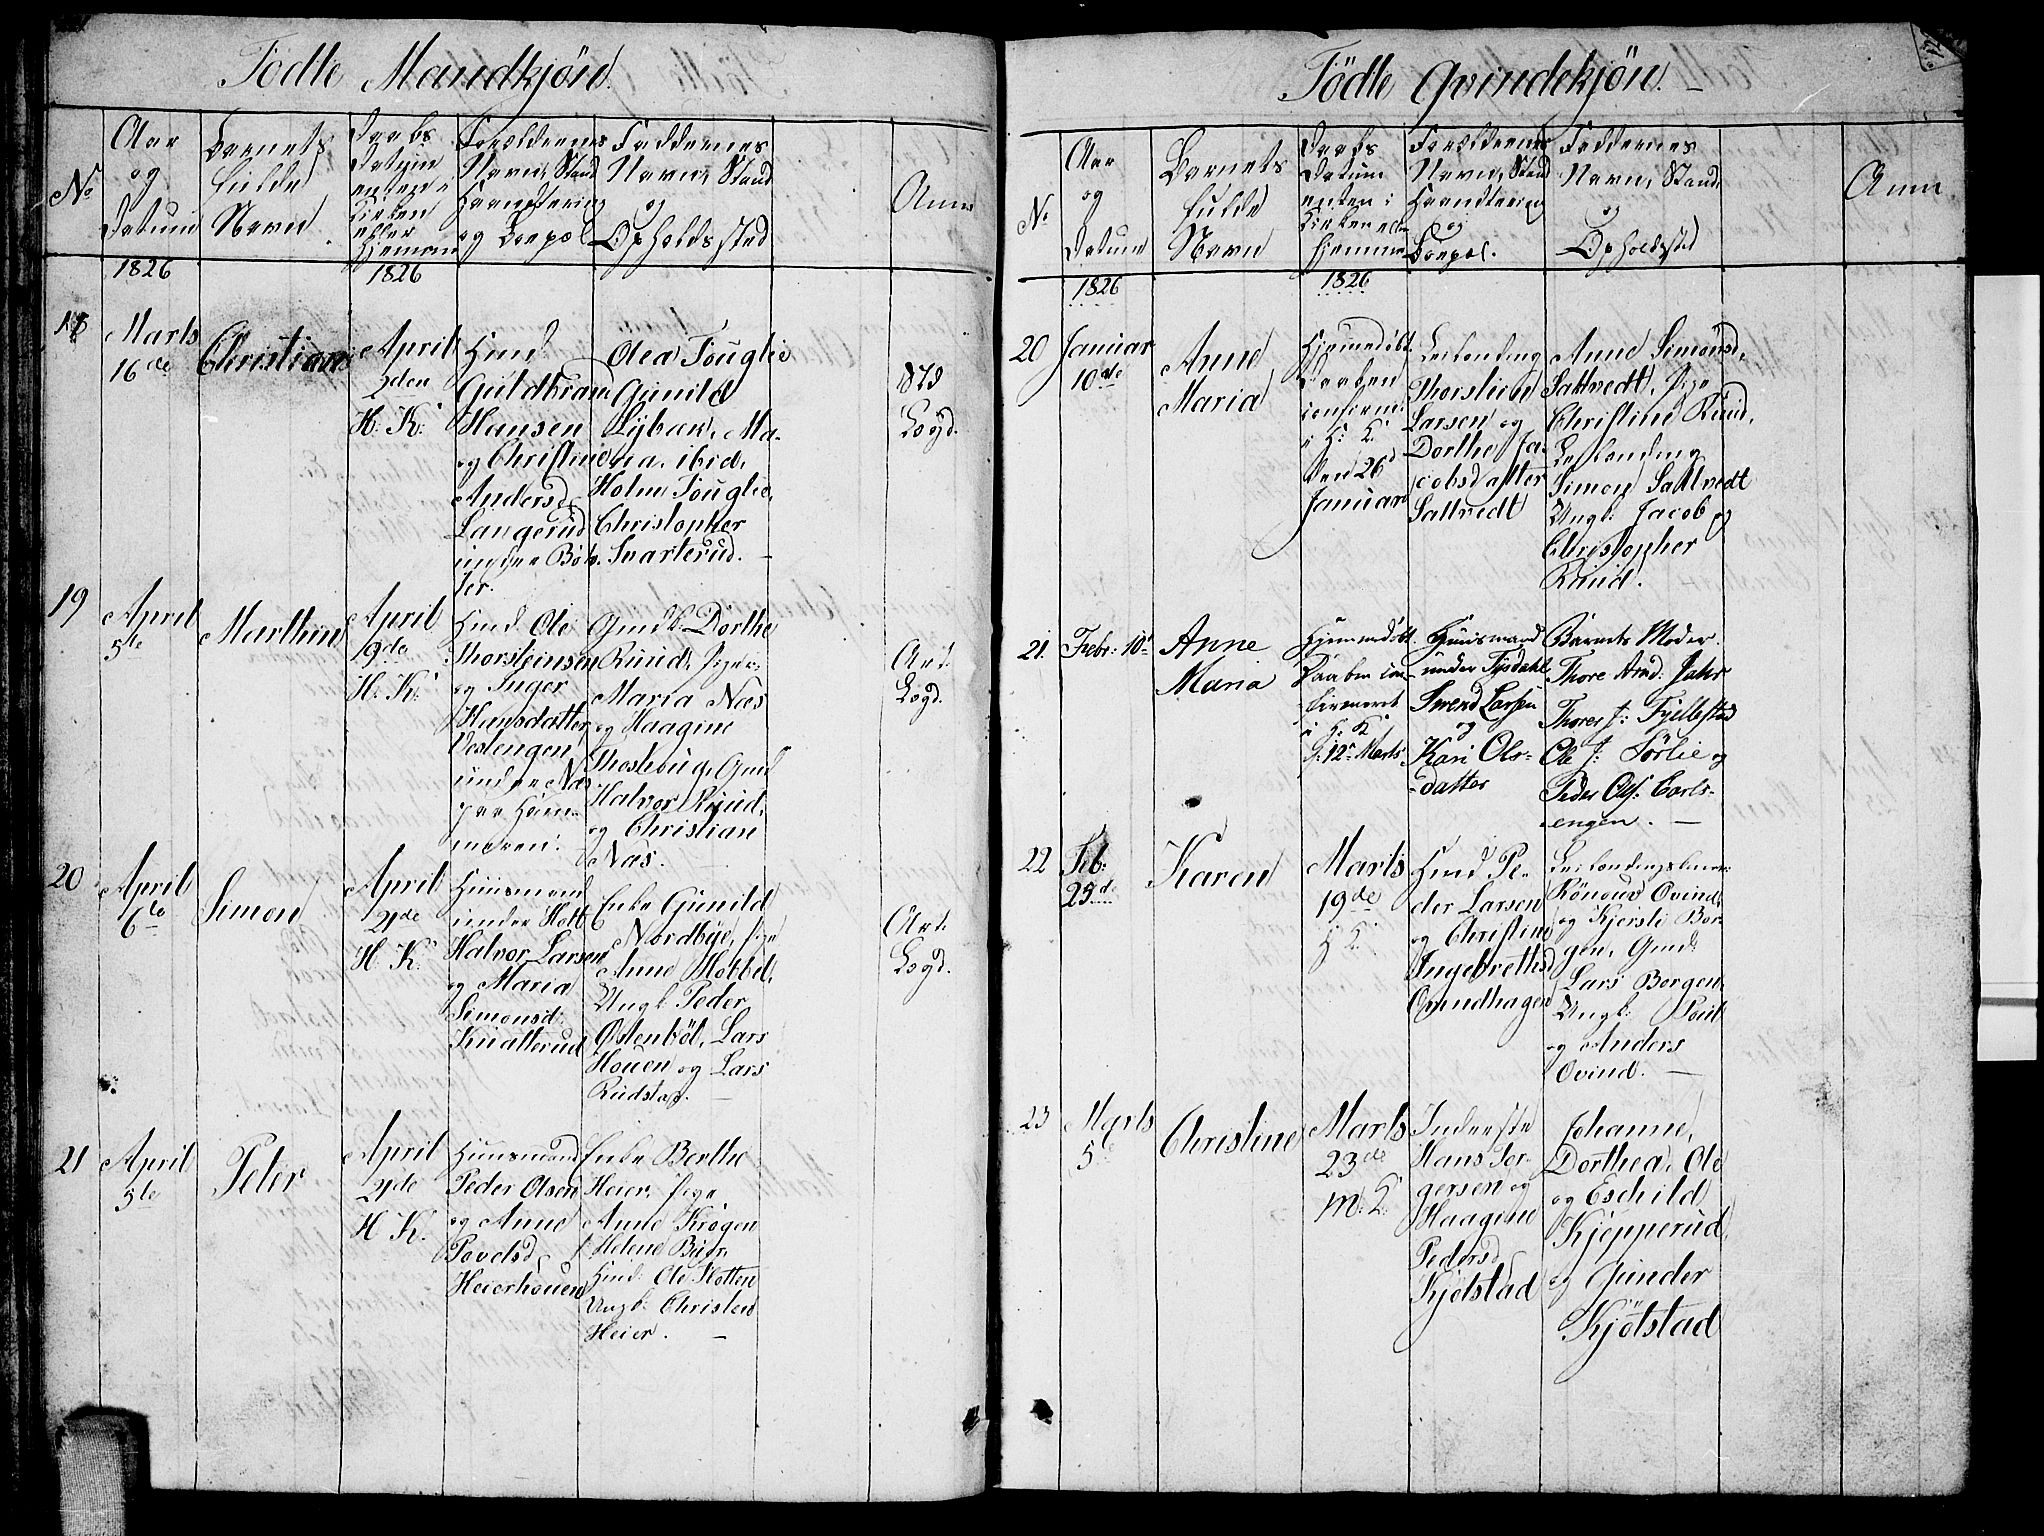 Födte Mandkjön.
No
Aar
og
Datum
Barnets
fulde
Navn
Daabs
Datum
enten i
Kirken
eller
Hjemme
Forældrenes
Navn, Stand
Haandtering
og Boepæl
Faddernes
Navn, Stand
og
Opholdssted
Anm
1826
1826
18
Marts
16de
Christian
April
2den
H: K:
Huusd
Guldbrand
Hansen
og Christine
Andersd
Langerud
under Böh-
ler.
Olea Fouglie
Gunild
Lybæk, Ma-
ria. ibid.
Holm Fouglie,
Christopher
Svarterud. –
19
April
5te
Marthin
April
19de
H: K:
Ole
Thorsteinsen
og Inger
Hansdatter
Vestengen,
under Næs
paa Ham-
meren.
Gmdk Dorthe
Ruud, Piger:
Maria Næs
og Haagine
Gmd
Halvor Ruud,
og Christian
Næs.
20
April
6te
Simon
April
21de
H: K:
Huusmand
under
Halvor Larsen
og Maria
Simonsd:
Knatterud
Enke Gunild
Nordbye, Pige
Anne
Ungk: Peder
Östenböl, Lars
Houen og Lars
Rudstag. –
21
April
5te
Peter
April
21de
H: K:
Huusmand
Peder Olsen
og Anne
Povelsd
Heierhouen
Enke Berthe
Heier, Pige
Anne Krogen
Helene Buer,
Ole Slotten
Ungk: Christen
Heier. –
Födte Qvindekjön. –
No
Aar
og
Datum
Barnets
fulde
Navn
Daabs
Datum
enten i
Kirken eller
hjemme
Forældrenes
Navn, Stand
Haandtering
og
Boepæl.
Faddernes
Navn, Stand
og
Opholdsted
Anm
1826
1826
20
Januar
10de
Anne
Maria
Hjemmedöbt
Daaben
confirm:
i H: K:
den 26d
Januar
Leilænding
Thorstein
Larsen og
Dorthe Ja-
cobsdatter
Saltvedt
Anne Simonsd,
Saltvedt, Pige
Christine Ruud,
Leilænding
Simon Saltvedt
Ungk: Jacob og
Christopher
Ruud.
21.
Febr: 10de
Anne
Maria
Hjemmedöbt.
Daaben con-
firmeret
i H: K:
d: 12te Marts
Huusmand
under Tysdahl
Svend Larsen
og
Kari Ols-
datter
Barnets Moder.
Thore And: Jahr
Thorer J: Fjellestad
Ole J: Sörlie og
Peder Ols: Carls-
engen. –
22
Feb:
25de
Karen
Marts
19de
H K:
Pe-
der Larsen
og Christine
Ingebrethsd
Ovindhagen
Rönnoug Ovind,
og Kjersti Bor-
gen, Gmd:
Lars Borgen,
Ungk: Poul
og Anders
Ovind. –
23
Marts
5te
Christine
Marts
23de
M: K:
Inderste
Hans Jör-
gersen og
Haagine
Pedersd
Kjölstad
Johanne,
Dorthea, Ole
og Eschild
Kjepperud,
og Gunder
Kjölstad